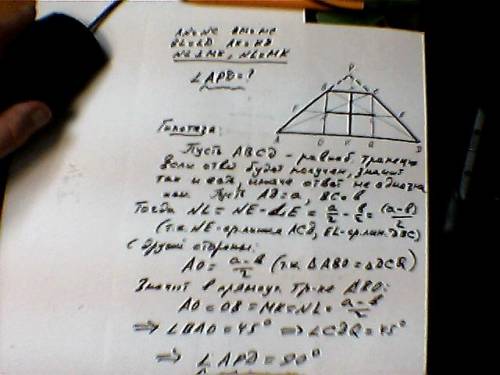 AN=NC BM=MC
BL=LD AK=KD
NL⊥MK, NL=MK
∠APD=?
Гипотеза:
Пусть ABCD - равноб. трапец.
если ответ будет получен, значит
так и есть, иначе ответ не однозна
Пусть AD=a, BC=b
Тогда NL = NE-LE = a/2 - b/2 = (a-b)/2
(т.к. NE-ср.линия ACD, EL-ср.лин. DBC)
С другой стороны:
AO = a-b/2 (т.к. ΔABO=ΔDCQ)
Значит в прямоуг. тр-ке ABO:
AO=OB=MK=NL= a-b/2
⇒ ∠BAO=45° ⇒ ∠CDQ=45°
⇒ ∠APD=90°
P
A O K Q D